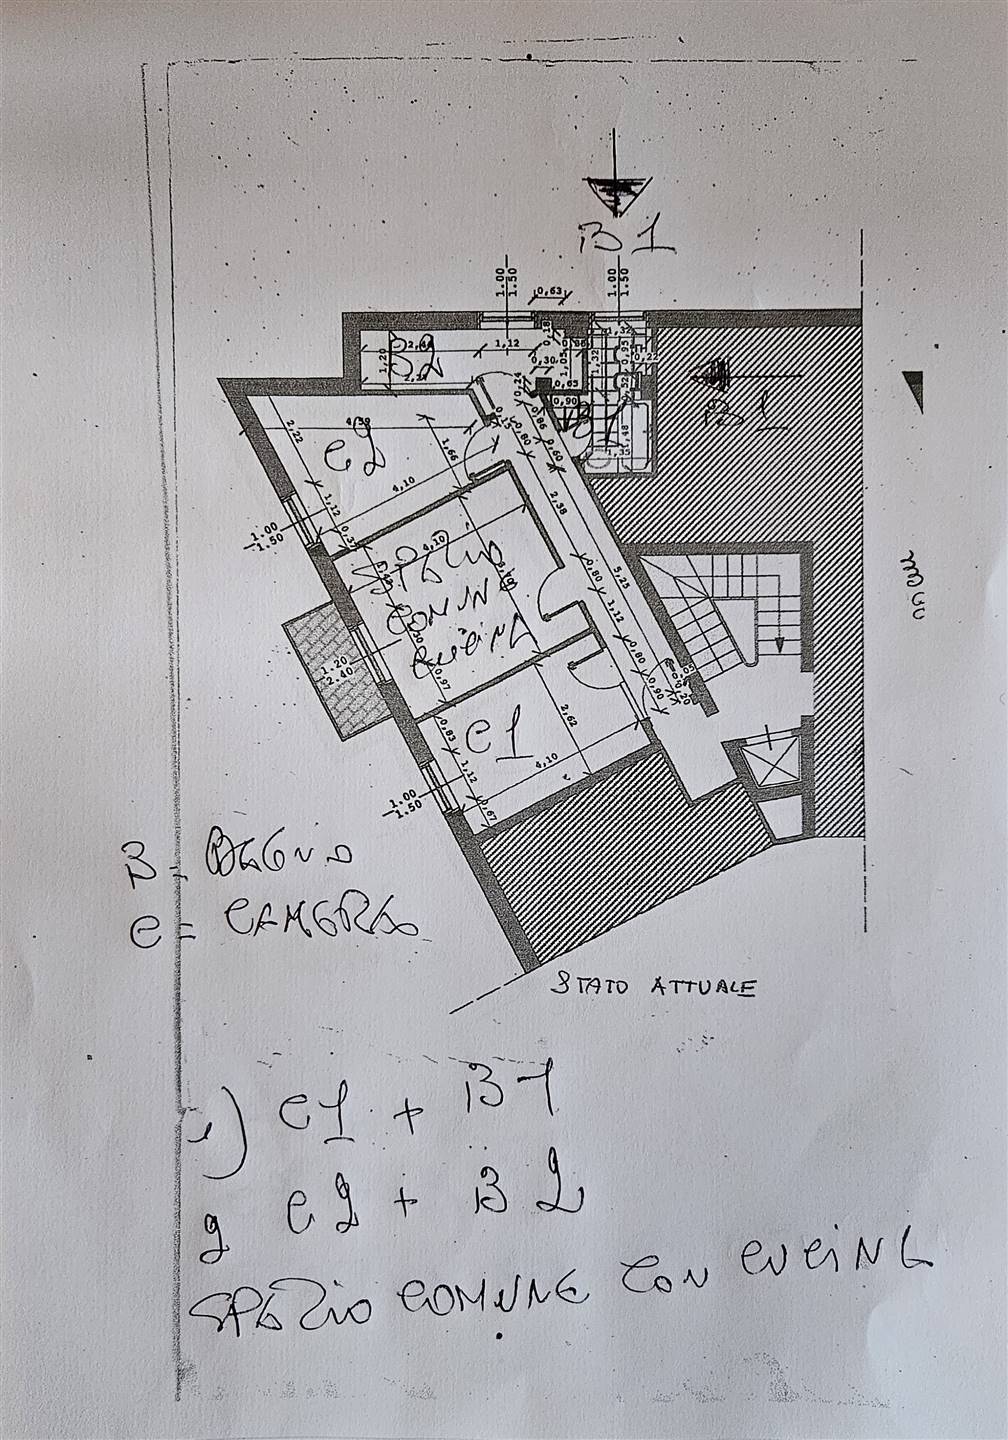 B1
1.00
1.50
0,63
1.00
1.50
B2
1,20
1,12
0,30
1,05
0,65
0,18
1,32
1,32
0,95
0,22
0,52
B1
0,24
0,90
B1
1,48
4,50
2,22
C2
1,66
4,10
0,80
0,60
1,12
2,38
1.00
1.50
4,10
SPAZIO
COMUNE
CUCINA
0,80
5,25
1,12
1.20
2.40
0,97
0,80
0,90
0,83
C1
2,62
1,12
4,10
1.00
1.50
0,67
B = BAGNO
C = CAMERA
STATO ATTUALE
1) C1 + B1
2 C2 + B2
SPAZIO COMUNE CON CUCINA